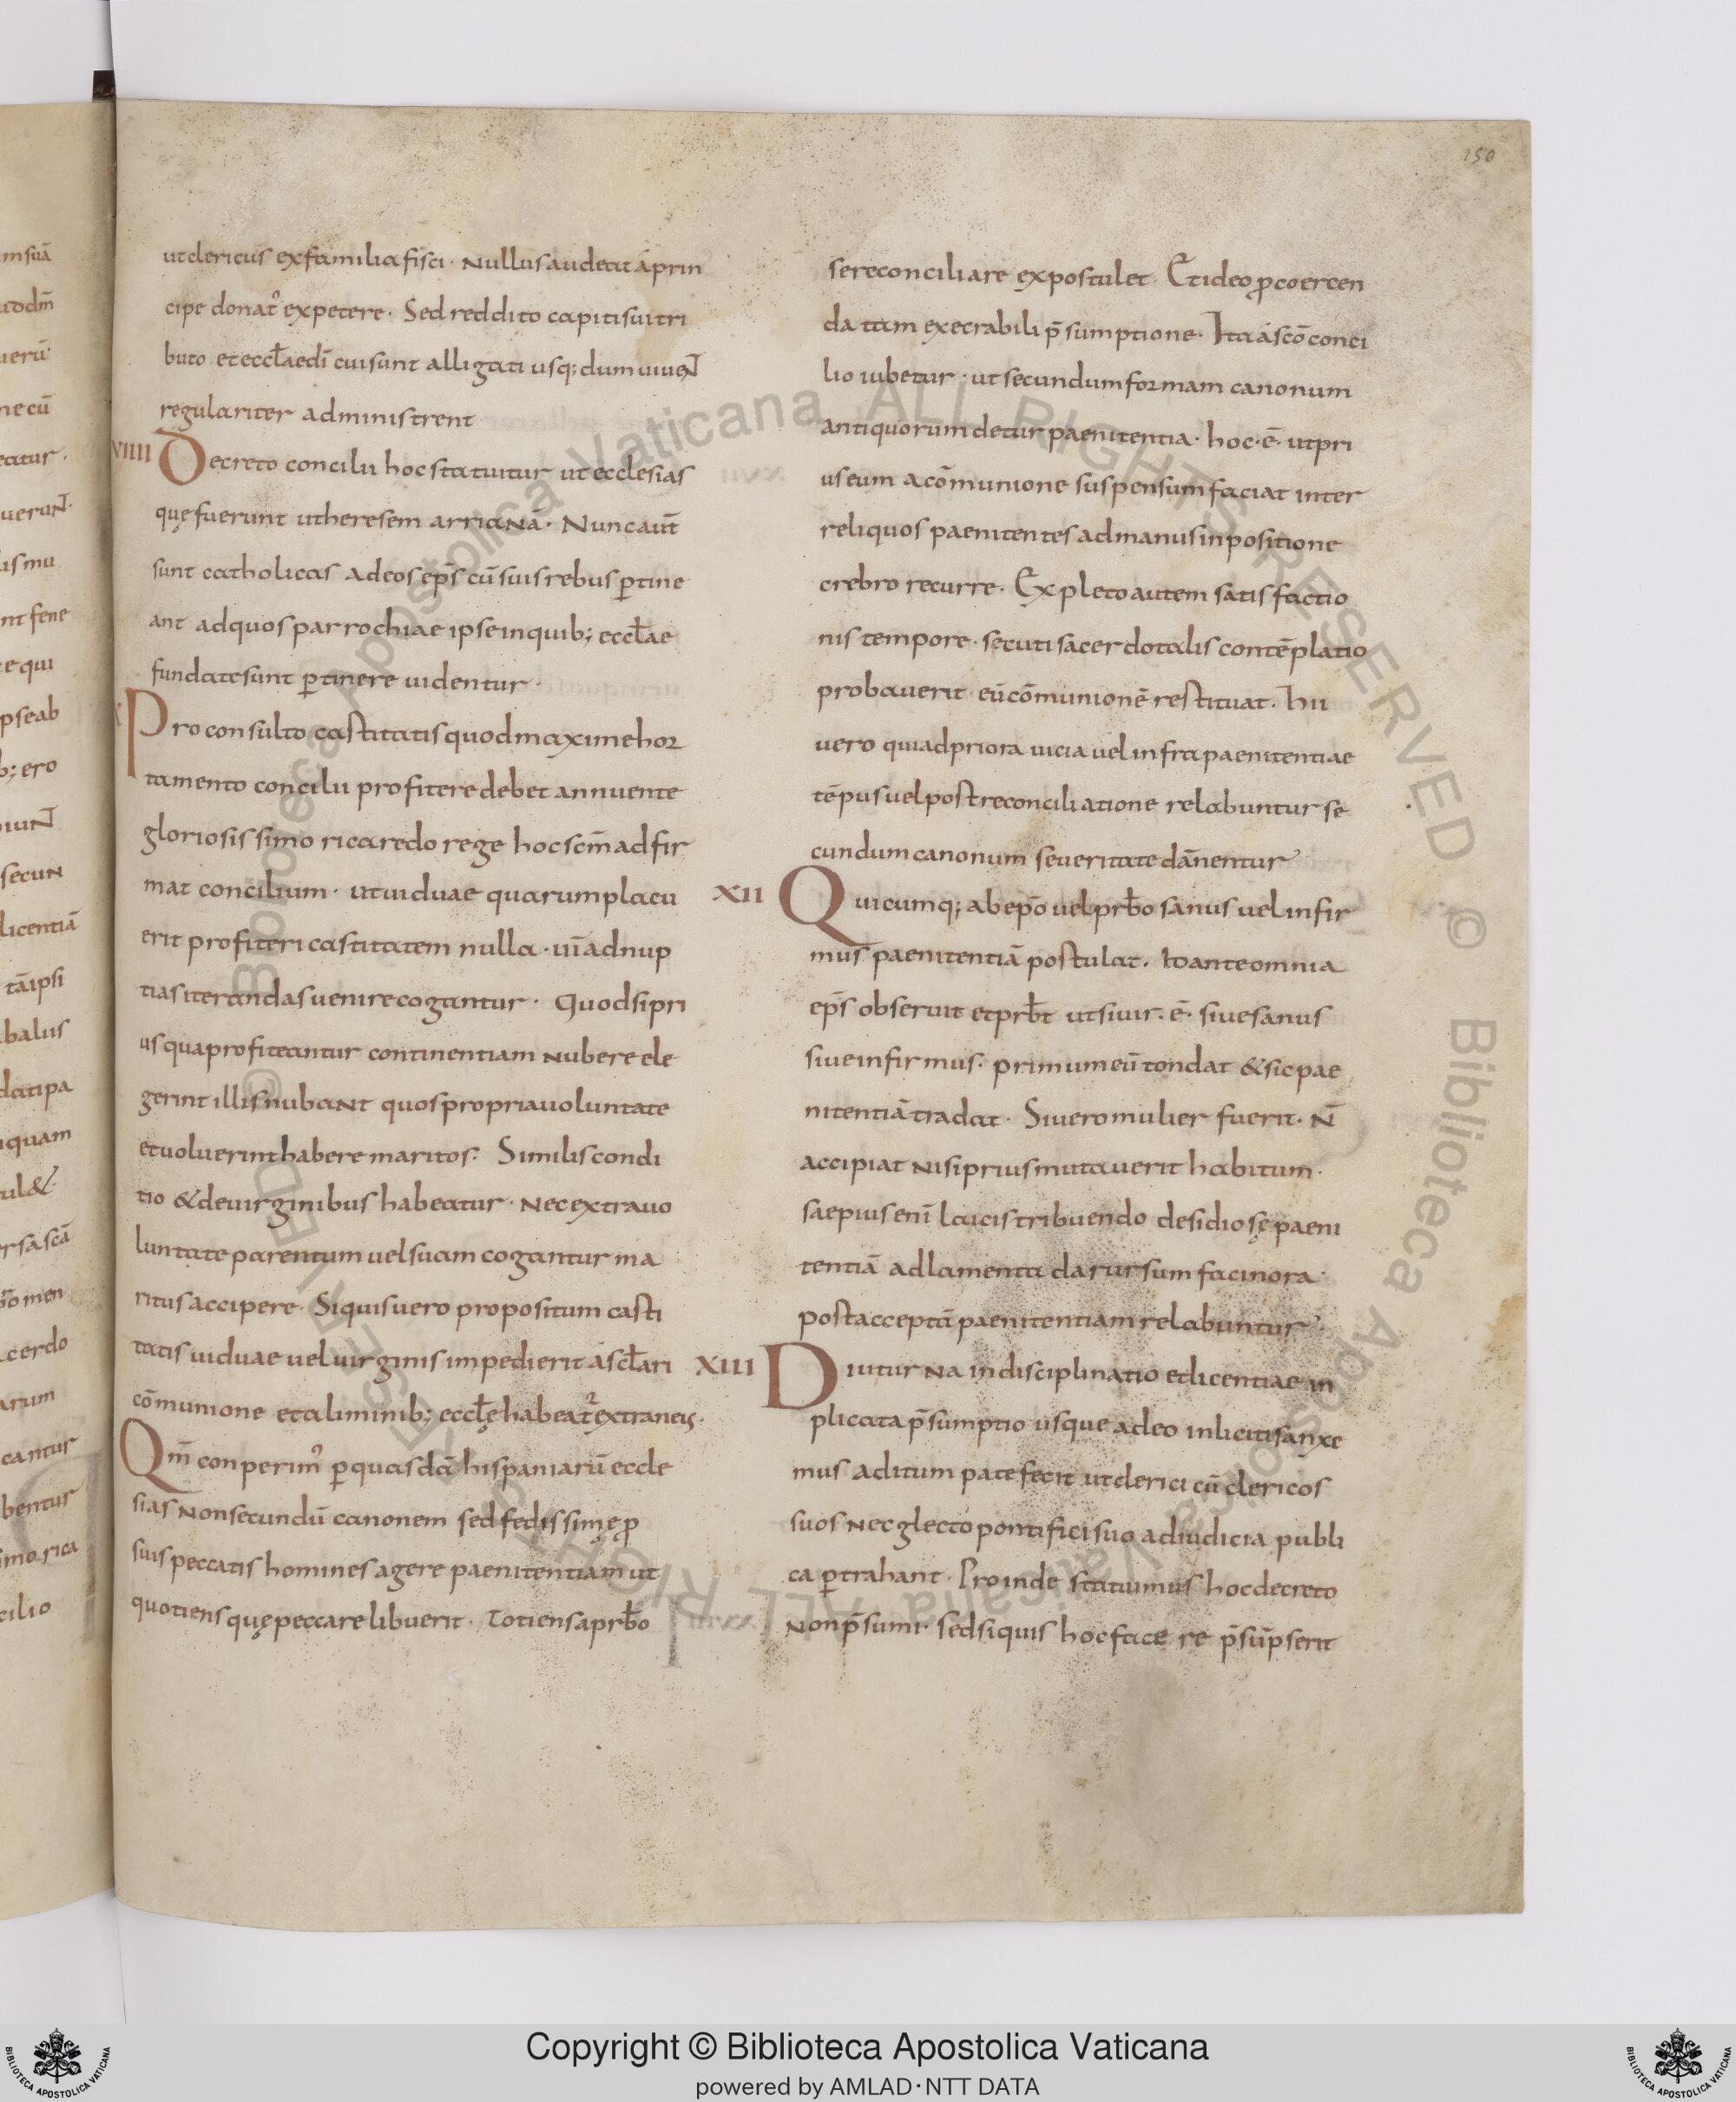 150
ut clericus ex familia fisci · Nullus audeat á prin
cipe donat᷒ expetere · Sed reddito capiti sui tri
buto et eccƚae dī cui sunt alligati usq; dum uiueÑ
regulariter administrent
VIIII Decreto concilii hoc statuitur ut ecclesias
quę fuerunt ut heresem arrianā · Nunc aut̄
sunt catholicas ad eos ep̄s cū suis rebus ꝑtine
ant ad quos parrochiae ipse in quib; eccƚae
fundate sunt ꝑtinere uidentur ·
X Pro consulto castitatis quod maxime hor
tamento concilii profitere debet annuente
gloriosissimo ricaredo rege hoc scm̄ adfir
mat concilium · ut uiduae quarum placu
erit profiteri castitatem nulla · uī ad nup
tias iterandas uenire cogantur · Quod si pri
us qua profiteantur continentiam nubere ele
gerint illis nubant quos propria uoluntate
et uoluerint habere maritos · Similis condi
tio & de uirginibus habeatur · Nec extra uo
luntate parentum uel suam cogantur ma
ritus accipere · Si quis uero propositum casti
tatis uiduae uel uirginis impedierit á scƚari
cōmunione et a liminib; eccƚę habeat᷒ extraneis ·
Qm̄ conperim᷒ ꝑ quasdā hispaniarū eccle
sias non secundū canonem sed fedissimę ꝓ
suis peccatis homines agere paenitentiam ut
quotiensquę peccare libuerit · Totiens a prb̄o
se reconciliare expostulet · Et ideo ꝓ coercen
da tam execrabili p̄sumptione · Ita á scō conci
lio iubetur · ut secundum formam canonum
antiquorum detur paenitentia · hoc · ē · ut pri
us eum a cōmunione suspensum faciat inter
reliquos paenitentes ad manus inpositione
crebro recurre · Expleto autem satisfactio
nis tempore · secuti sacerdotalis contēplatio
probauerit · eū cōmunionē restituat · Hii
uero qui ad priora uicia uel infra paenitentiae
tēpus uel post reconciliatione relabuntur se
cundum canonum seueritate dānentur
XII Quicumq; ab ep̄o uel prb̄o sanus uel infir
mus paenitentiā postulat · Id ante omnia
ep̄s obseruit et prb̄t ut si uir · ē · siue sanus
siue infirmus · primum eū tondat & sic pae
nitentiā tradat · Si uero mulier fuerit · N̄
accipiat nisi prius mutauerit habitum ·
saepius enī laicis tribuendo desidiosę paeni
tentiā ad lamenta da rursum facinora ·
post acceptā paenitentiam relabuntur ·
XIII Diuturna indisciplinatio et licentiae in
plicata p̄sumptio usque adeo inlicitis anxe
mus aditum patefecit ut clerici cū clericos
suos necglecto pontifici suo ad iudicia publi
ca ꝑtrahant · Proinde statuimus hoc decreto
non p̄sumi · sed si quis hoc face re p̄sūpserit
m suā
ne cū
uerun̄ ·
is mu
nt fene
e qui
pse ab
b; ero
secun
licentiā
tā ipsi
balus
dati pa
quam
ul& ·
cerdo
arum
cantur
bentur
imo rica
cilio
Copyright © Biblioteca Apostolica Vaticana
powered by AMLAD·NTT DATA